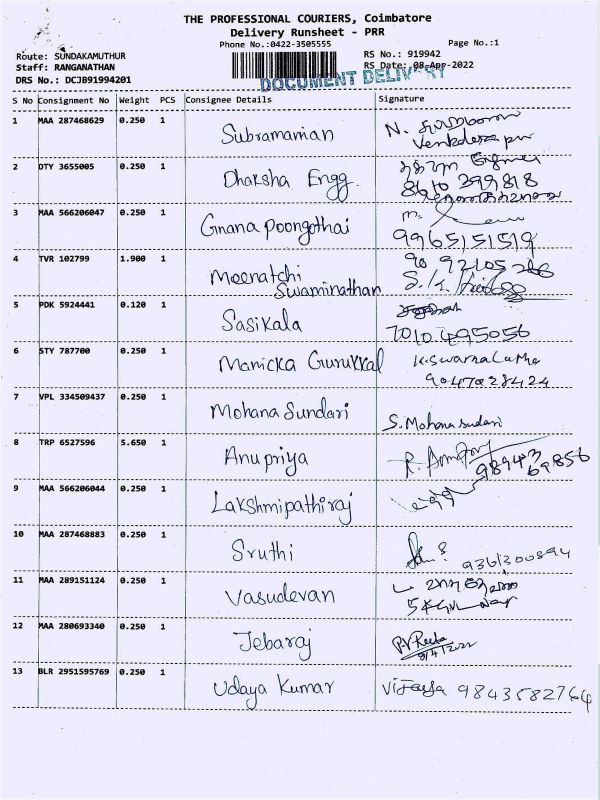 THE PROFESSIONAL COURIERS, Coimbatore
Delivery Runsheet - PRR
Phone No.:0422-3505555
Page No.:1
Route: SUNDAKAMUTHUR
RS No.: 919942
Staff: RANGANATHAN
RS Date: 08-Apr-2022
DRS No.: DCJB91994201
DOCUMENT DELIVERY
S No Consignment No Weight PCS Consignee Details Signature
1 MAA 287468629 0.250 1 Subramanian N.
2 DTY 3655005 0.250 1 Dhaksha Engg. 8610 399818
3 MAA 566206047 0.250 1 Gnana Poongothai m.
9965151519
4 TVR 102799 1.900 1 Meenatchi
Swaminathan
5 PDK 5924441 0.120 1 Sasikala
7010495056
6 STY 787700 0.250 1 Manicka Gurukkal K.Swarnalatha
9047028424
7 VPL 334509437 0.250 1 Mohana Sundari S. Mohana sundari
8 TRP 6527596 5.650 1 Anupriya 98943
69856
9 MAA 566206044 0.250 1 Lakshmipathiraj
10 MAA 287468883 0.250 1 Sruthi 9361300894
11 MAA 289151124 0.250 1 Vasudevan
12 MAA 280693340 0.250 1 Jebaraj
9/4/2022
13 BLR 2951595769 0.250 1 Udaya Kumar Vijaya 9843582764